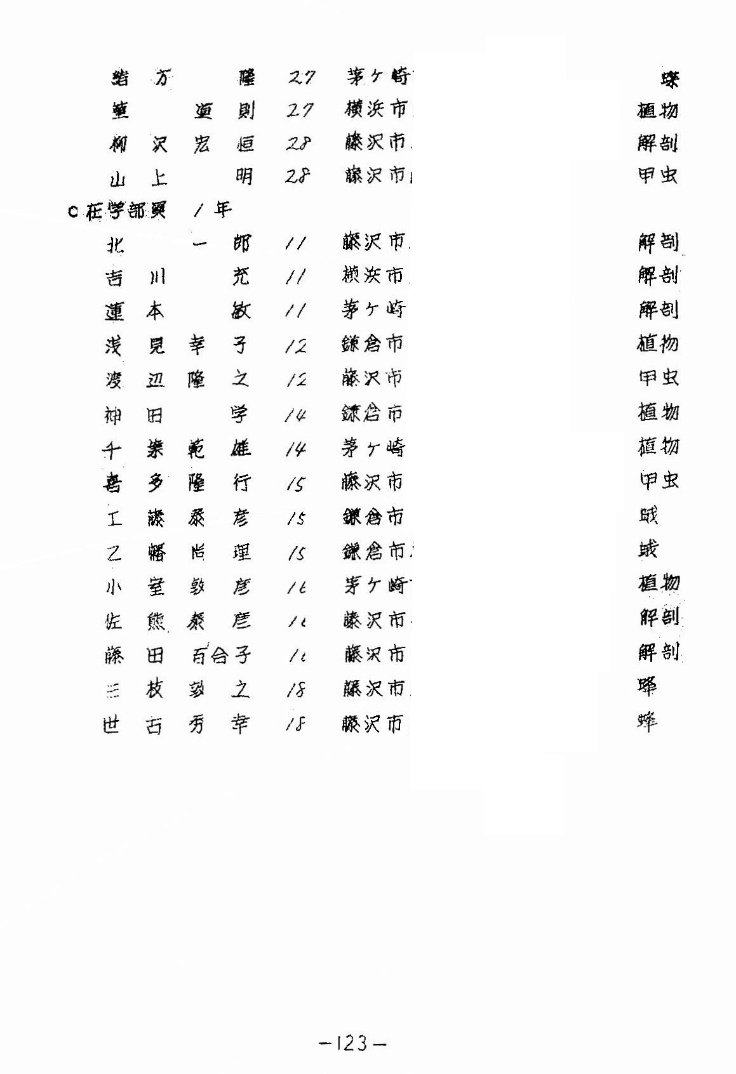 緒方 隆 27 茅ケ崎 蝶
道則 27 横浜市 植物
柳沢宏恒 28 藤沢市 解剖
山上 明 28 藤沢市 甲虫
○在学部員 1年
北 一郎 11 藤沢市 解剖
吉川 充 11 横浜市 解剖
蓮本 敏 11 茅ケ崎 解剖
浅見幸子 12 鎌倉市 植物
渡辺隆之 12 藤沢市 甲虫
神田 学 14 鎌倉市 植物
千葉範雄 14 茅ケ崎 植物
喜多隆行 15 藤沢市 甲虫
工藤泰彦 15 鎌倉市 蛾
乙幡尚理 15 鎌倉市 蛾
小室敦彦 16 茅ケ崎 植物
佐熊泰彦 16 藤沢市 解剖
藤田百合子 16 藤沢市 解剖
三枝敦之 18 藤沢市
世古秀幸 18 藤沢市 蜂
-123-